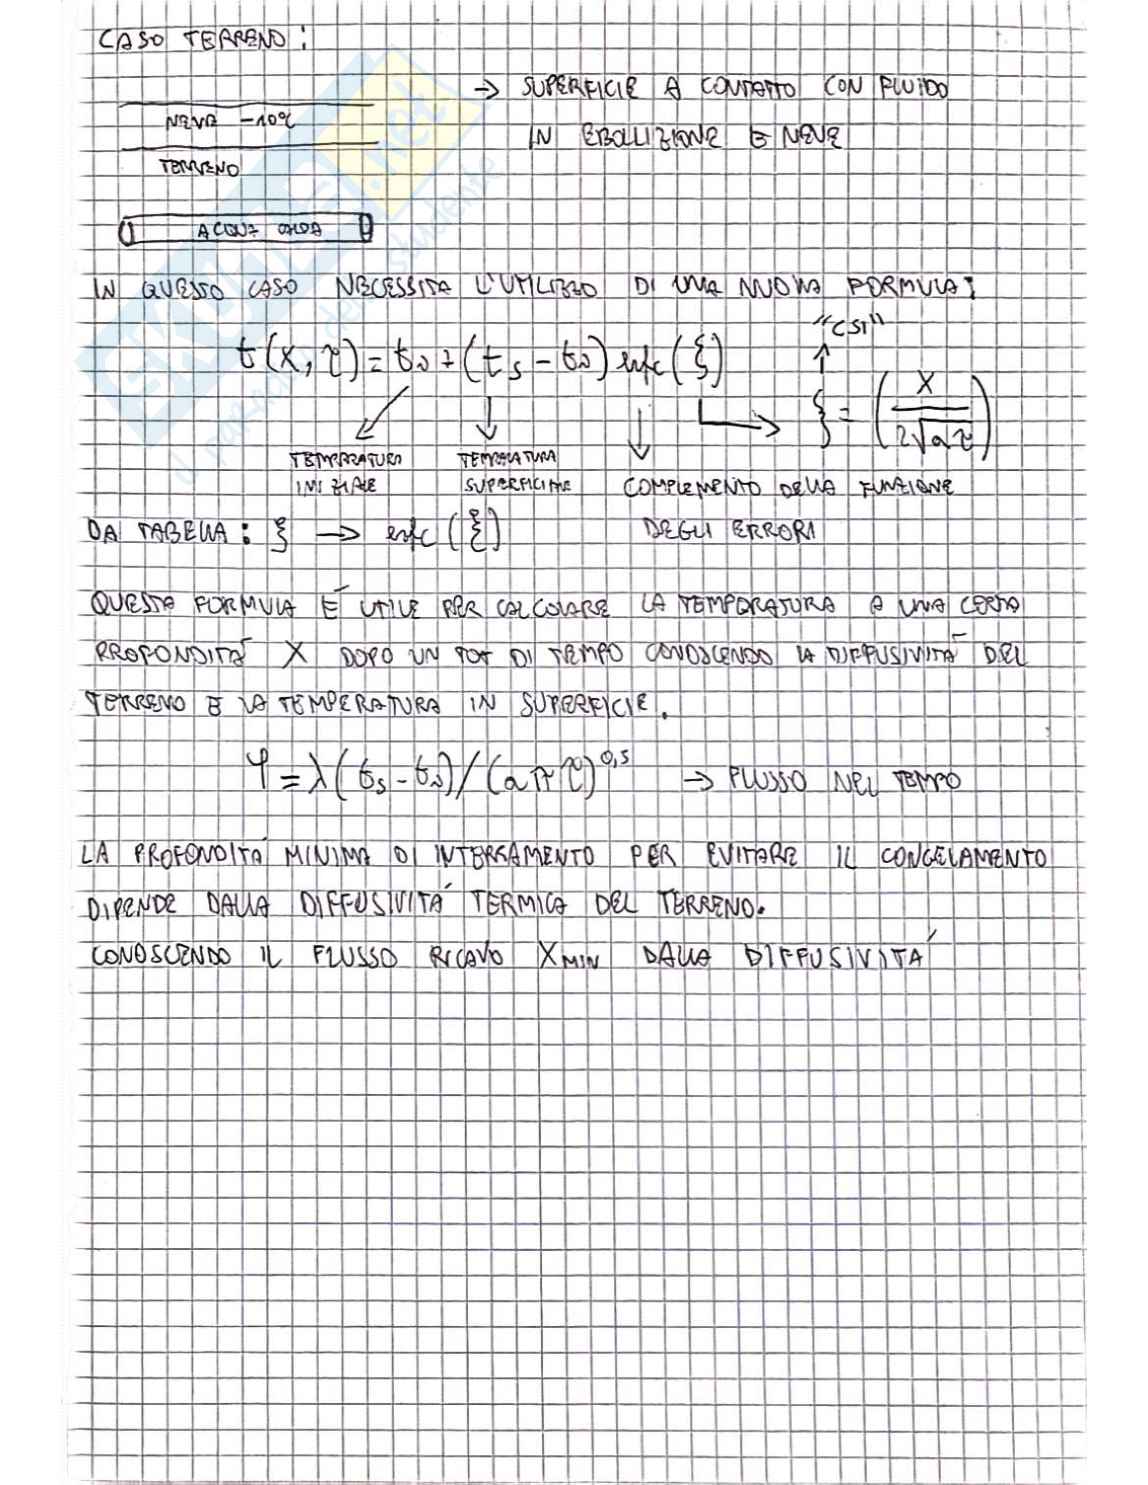 CASO TERRENO:
→ SUPERFICIE A CONTATTO CON FLUIDO
NEVE -10°C
IN EBOLLIZIONE E NEVE
TERRENO
ACQUA CALDA
IN QUESTO CASO NECESSITA L'UTILIZZO DI UNA NUOVA FORMULA:
"CSI"
t(x, τ) = t₀ + (ts - t₀) erfc(ξ)
ξ = (x / 2√aτ)
TEMPERATURA INIZIALE
TEMPERATURA SUPERFICIALE
COMPLEMENTO DELLA FUNZIONE
DEGLI ERRORI
DA TABELLA: ξ → erfc(ξ)
QUESTA FORMULA É UTILE PER CALCOLARE LA TEMPERATURA A UNA CERTA
PROFONDITÁ X DOPO UN TOT DI TEMPO CONOSCENDO LA DIFFUSIVITÁ DEL
TERRENO E LA TEMPERATURA IN SUPERFICIE.
φ = λ(ts - t₀)/(aπτ)^0,5 → FLUSSO NEL TEMPO
LA PROFONDITÁ MINIMA DI INTERRAMENTO PER EVITARE IL CONGELAMENTO
DIPENDE DALLA DIFFUSIVITÁ TERMICA DEL TERRENO.
CONOSCENDO IL FLUSSO RICAVO XMIN DALLA DIFFUSIVITÁ
SKUOLA.net
il paradiso dello studente